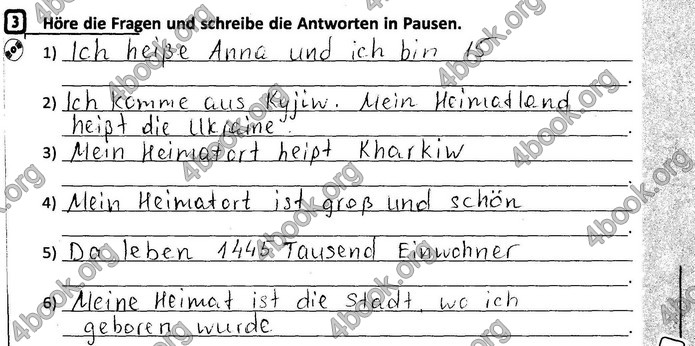 3 Höre die Fragen und schreibe die Antworten in Pausen.
1) Ich heiße Anna und ich bin 15
2) Ich komme aus Kyjiw. Mein Heimadland
heißt die Ukraine.
3) Mein Heimatort heißt Kharkiw
4) Mein Heimatort ist groß und schön
5) Da leben 1445 Tausend Einwohner
6) Meine Heimat ist die Stadt, wo ich
geboren wurde
4book.org